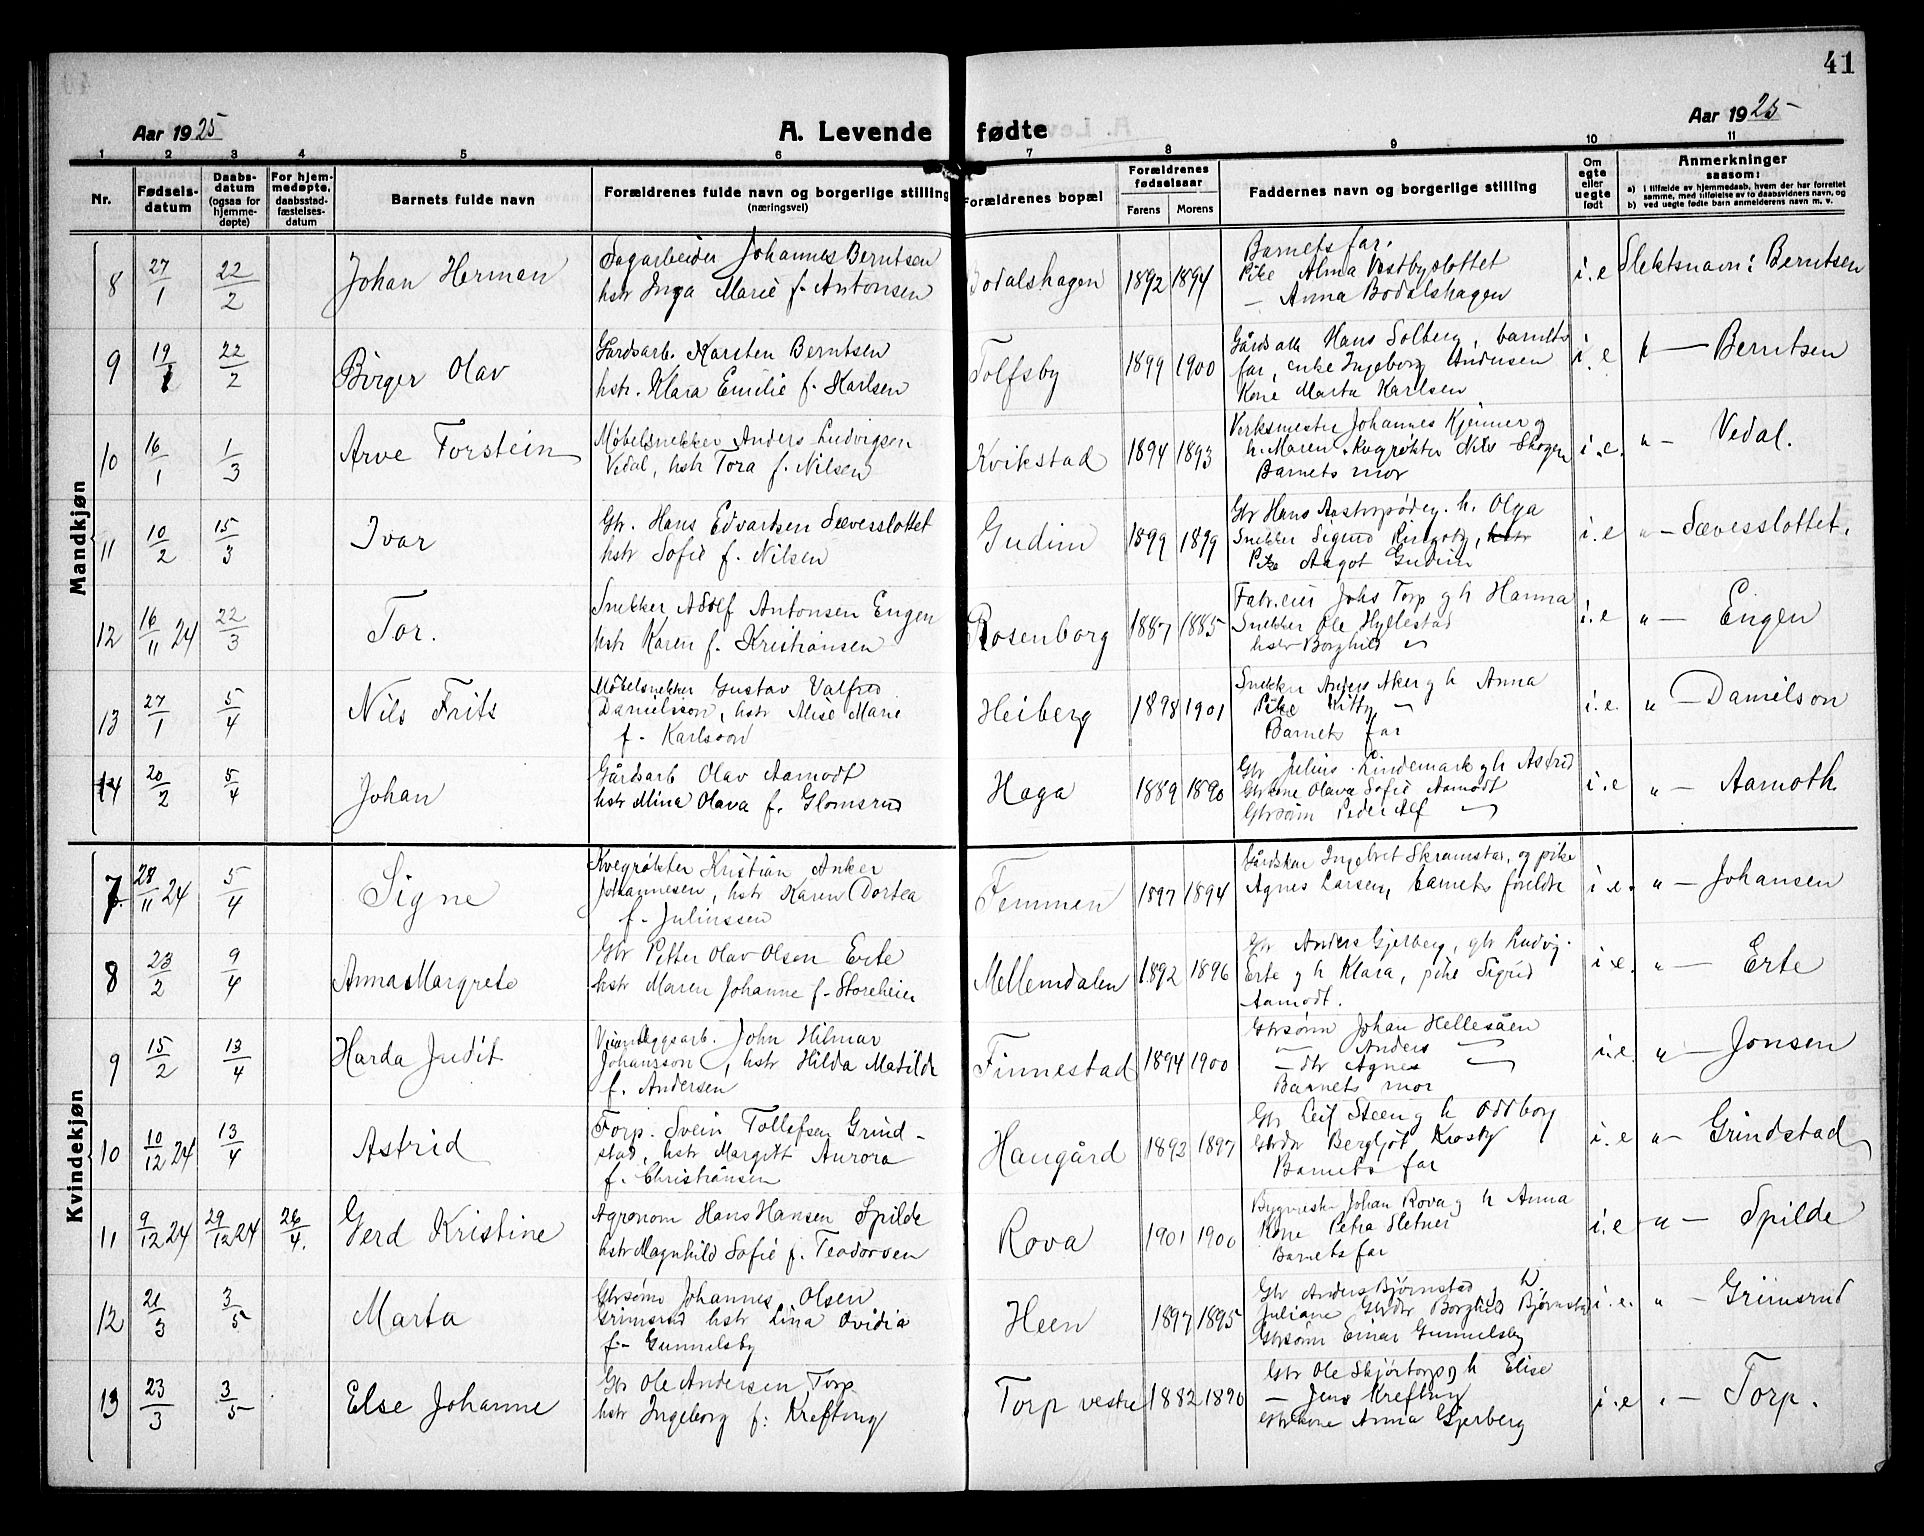 41
Aar 1925
A. Levende fødte
Aar 1925
1 2 3 4 5 6 7 8 9 10 11
Nr.
Fødselsdatum
Daabsdatum (ogsaa for hjemmedøpte)
For hjemmedøpte, daabsstadfæstelsesdatum
Barnets fulde navn
Forældrenes fulde navn og borgerlige stilling
(næringsvei)
Forældrenes bopæl
Forældrenes fødselsaar
Farens Morens
Faddernes navn og borgerlige stilling
Om egte eller uegte født
Anmerkninger
saasom:
a) i tilfælde av hjemmedaab, hvem der har forrettet samme, med tilføielse av to daabsvidners navn, og
b) ved uegte fødte barn anmelderens navn m. v.
Mandkjøn
8 27/1 22/2 Johan Herman
Sagarbeider Johannes Berntsen
hstr Inga Marie f. Antonsen
Bodalshagen 1892 1894
Barnets far.
Pike Alma Vestbyslottet
— Anna Bodalshagen
i.e Slektsnavn: Berntsen
9 19/1 22/2 Birger Olav
Gårdsarb. Karsten Berntsen
hstr. Klara Emilie f. Karlsen
Tolfsby 1899 1900
Gårdsarb Hans Solberg, barnets
far, enke Ingeborg Andersen
Kone Marta Karlsen
i.e — Berntsen
10 16/1 1/3 Arve Torstein
Møbelsnekker Anders Ludvigsen
Vedal, hstr Tora f. Nilsen
Kvikstad 1894 1893
Verksmester Johannes Kjenner og
h. Maren. Kvegrøkter Nils Skogen
Barnets mor
i.e. " — Vedal.
11 10/2 15/3 Ivar
Gbr. Hans Edvardsen Sævesslottet
hstr Sofie f. Nilsen
Gudim 1899 1899
Gbr Hans Aastorpød og h. Olga
Snekker Sigurd Ringsby,
Pike Aagot Gudim
i.e " — Sævesslottet.
12 16/11 24 22/3 Tor.
Snekker Adolf Antonsen Engen
hstr Karen f. Kristiansen
Rosenborg 1887 1885
Fabr.eier Johs Torp og h Hanna
Snekker Ole Hyllestad
hstr Borghild "
i.e " — Engen
13 27/1 5/4 Nils Frits
Møbelsnekker Gustav Valfred
Danielsson, hstr Alise Marie
f. Karlsson
Heiberg 1898 1901
Snekker Anders Aker og h Anna
Pike Kitty "
Barnets far
i.e. " — Danielson
14 20/2 5/4 Johan
Gårdsarb Olav Aamodt
hstr Mina Olava f. Glomsrud
Haga 1889 1890
Gbr Julius Lindemark og h Astrid
Gbrkone Olava Sofie Aamodt
Gbrsønn Peder Alf "
i.e " — Aamoth
Kvindekjøn
7. 28/11 24 5/4 Signe
Kvegrøkter Kristian Anker
Johannesen, hstr Karen Dortea
f. Juliussen
Femmen 1897 1894
Gårdskar Ingebret Skramstad, og pike
Agnes Larsen, barnets foreldre
i.e. " — Johansen
8 23/2 9/4 Anna Margrete
Gbr Petter Olav Olsen Erte
hstr Maren Johanne f. Storeheier
Mellemdalen 1892 1896
Gbr Anders Gjerberg, gbr Ludvig
Erte og h Klara, pike Sigrid
Aamodt.
i.e. " — Erte
9 15/2 13/4 Harda Judit
John Hilmar
Johansson, hstr Hilda Matilde
f. Andersen
Finnestad 1894 1900
Gbrsønn Johan Hellesåen
— Anders "
— dtr Agnes "
Barnets mor
i.e. " — Jonsen
10 10/12 24 13/4 Astrid
Forp. Svein Tollefsen Grind-
stad, hstr Margitt Aurora
f. Christiansen
Haugård 1892 1897
Gbr Leif Steen og h Oddborg
Gbrdtr Bergljot Krosby
Barnets far
i.e " — Grindstad
11 9/12 24 29/12 24 26/4. Gerd Kristine
Agronom Hans Hansen Spilde
hstr Magnhild Sofie f. Teodorsen
Rova 1901 1900
Bygmestr Johan Rova og h Anna
Kone Petra Sletner
Barnets far
i.e " — Spilde
12 21/3 3/5 Marta
Gbrsønn Johannes Olsen
Grimsrud hstr Lina Ovidia
f. Gunnelsby
Heen 1897 1895
Gbr Anders Bjørnstad, h
Juliane Gbrdtr Borghild Bjørnstad
Gbrsønn Einar Gunnelsby
i.e. " — Grimsrud
13 23/3 3/5 Else Johanne
Gbr Ole Andersen Torp
hstr Ingeborg f. Krefting
Torp vestre 1882 1890
Gbr Ole Skjørtorp og h Elise
— Jens Krefting
Gbrkone Anna Gjerberg
i.e " — Torp.